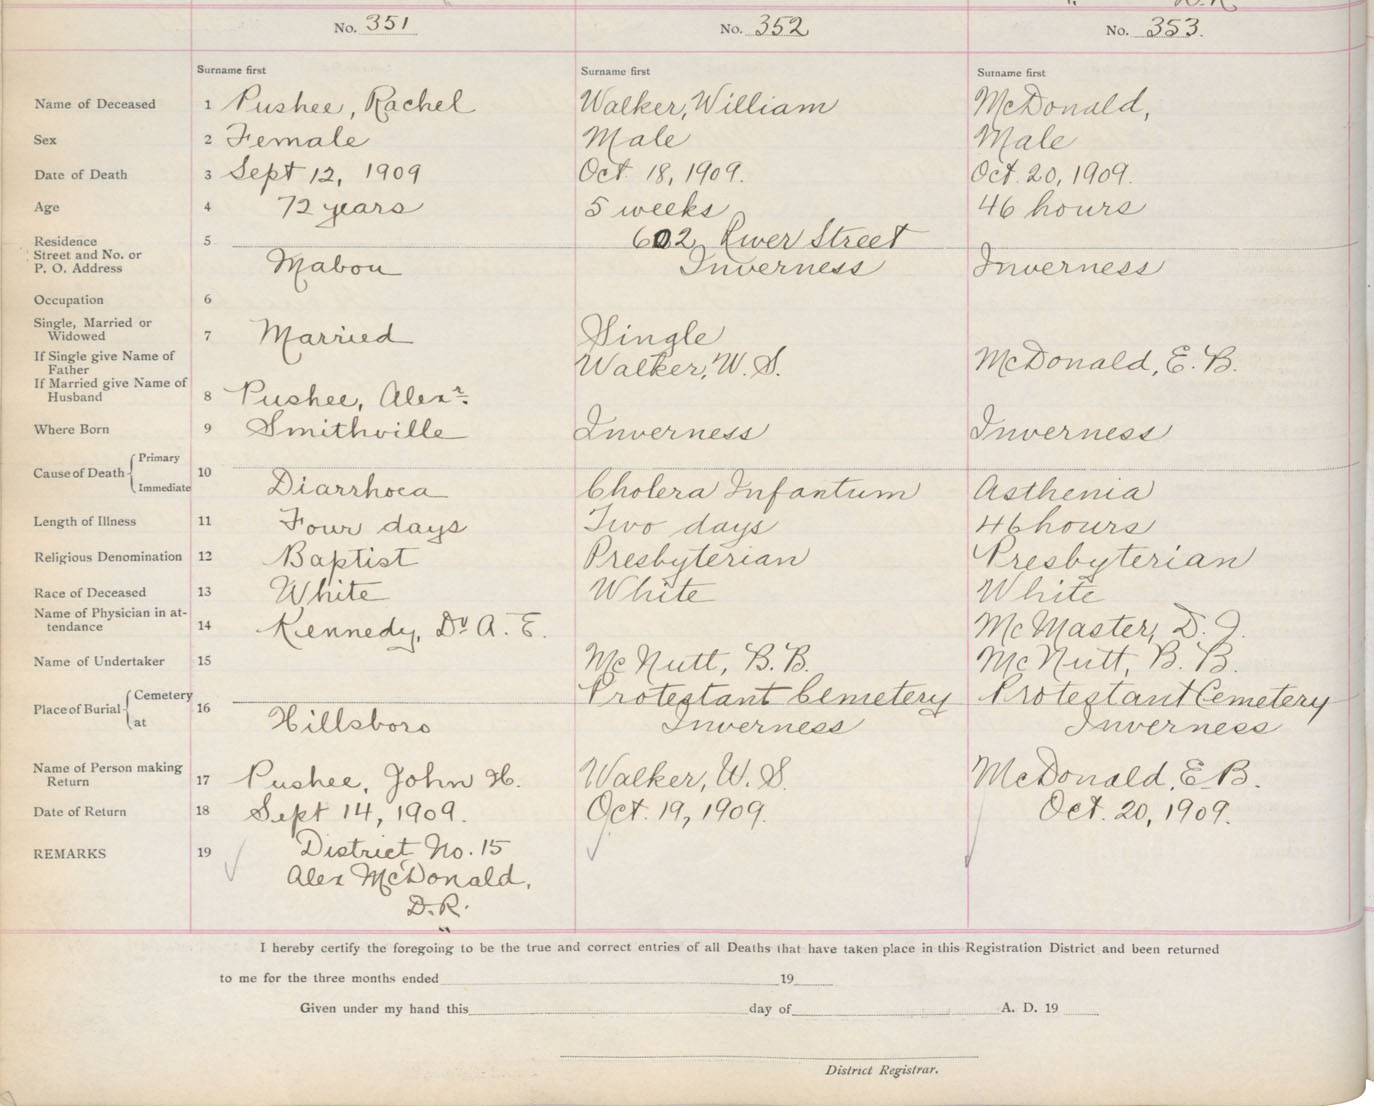 D.R.
No. 351 No. 352 No. 353.
Surname first Surname first Surname first
Name of Deceased 1 Pushee, Rachel Walker, William McDonald,
Sex 2 Female Male Male
Date of Death 3 Sept 12, 1909 Oct. 18, 1909. Oct. 20, 1909.
Age 4 72 years 5 weeks 46 hours
Residence 5 602 River Street
Street and No. or
P. O. Address Mabou Inverness Inverness
Occupation 6
Single, Married or
Widowed 7 Married Single
If Single give Name of
Father Walker, W. S. McDonald, E. B.
If Married give Name of
Husband 8 Pushee, Alexr.
Where Born 9 Smithville Inverness Inverness
Cause of Death Primary 10
Immediate Diarrhoea Cholera Infantum Asthenia
Length of Illness 11 Four days Two days 46 hours
Religious Denomination 12 Baptist Presbyterian Presbyterian
Race of Deceased 13 White White White
Name of Physician in at-
tendance 14 Kennedy, Dr A. E. McMaster, D. J.
Name of Undertaker 15 McNutt, B. B. McNutt, B. B.
Place of Burial Cemetery 16 Protestant Cemetery Protestant Cemetery
at Hillsboro Inverness Inverness
Name of Person making
Return 17 Pushee, John H. Walker, W. S. McDonald, E B.
Date of Return 18 Sept 14, 1909. Oct. 19, 1909. Oct. 20, 1909.
REMARKS 19 District No. 15
Alex McDonald,
D.R.
I hereby certify the foregoing to be the true and correct entries of all Deaths that have taken place in this Registration District and been returned
to me for the three months ended 19
Given under my hand this day of A. D. 19
District Registrar.